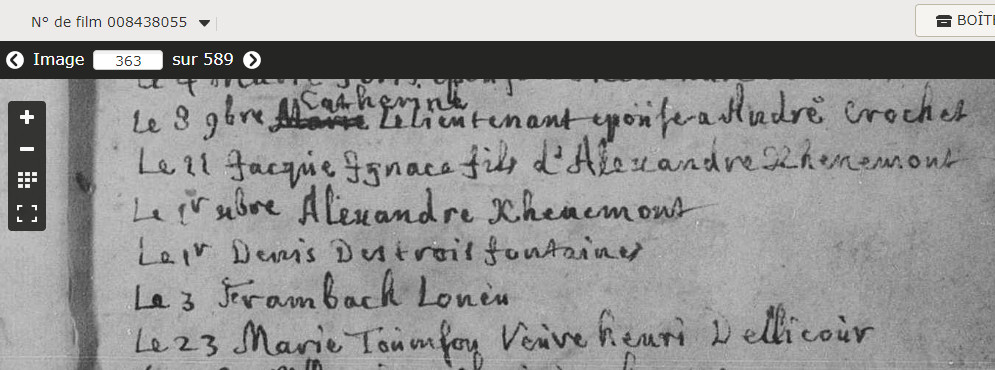 N° de film 008438055
BOÎT
Image 363 sur 589
Catherine
Le 8 9bre Marie Lelieutenant epouse a André Crochet
Le 21 Jacque Ignace fils d'Alexandre Khenemont
Le 1r xbre Alexandre Khenemont
Le 1r Denis Destroisfontaines
Le 3 Frambach
Le 23 Marie Veuve henri Dellicour